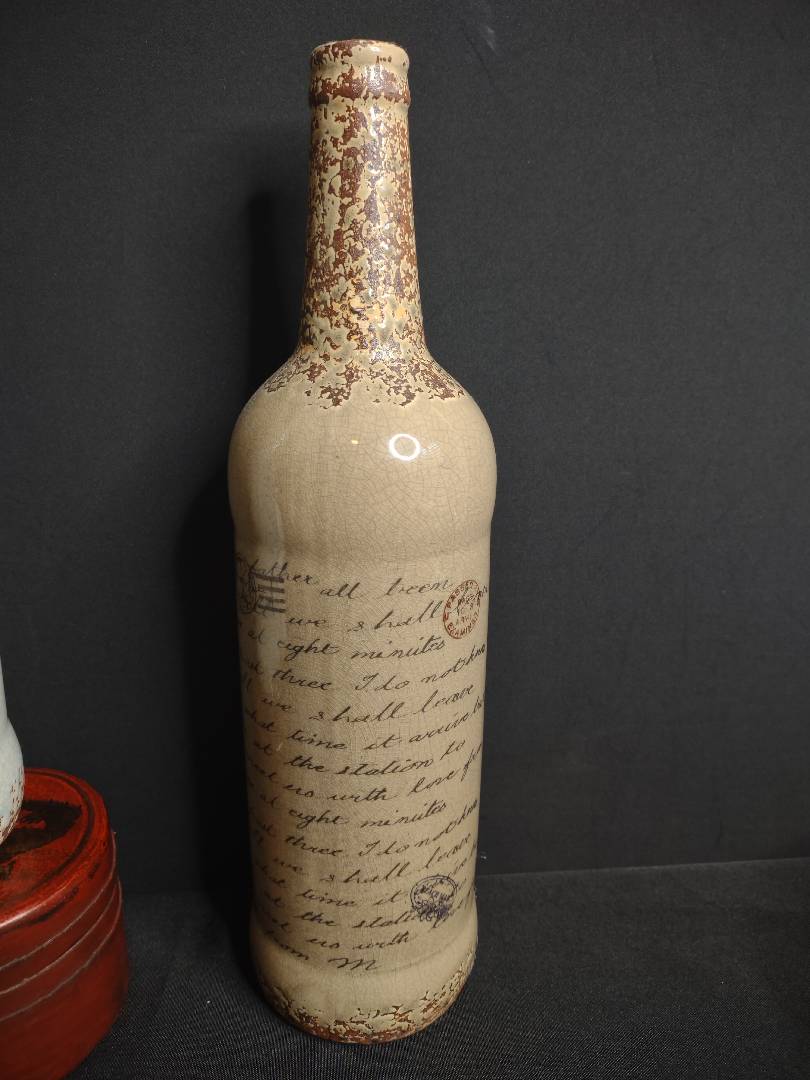 father all been
we shall
at eight minutes
three I do not
we shall leave
time it arrive
at the station to
us with love
at eight minutes
three I do not
we shall leave
time it
at the
us with
from M